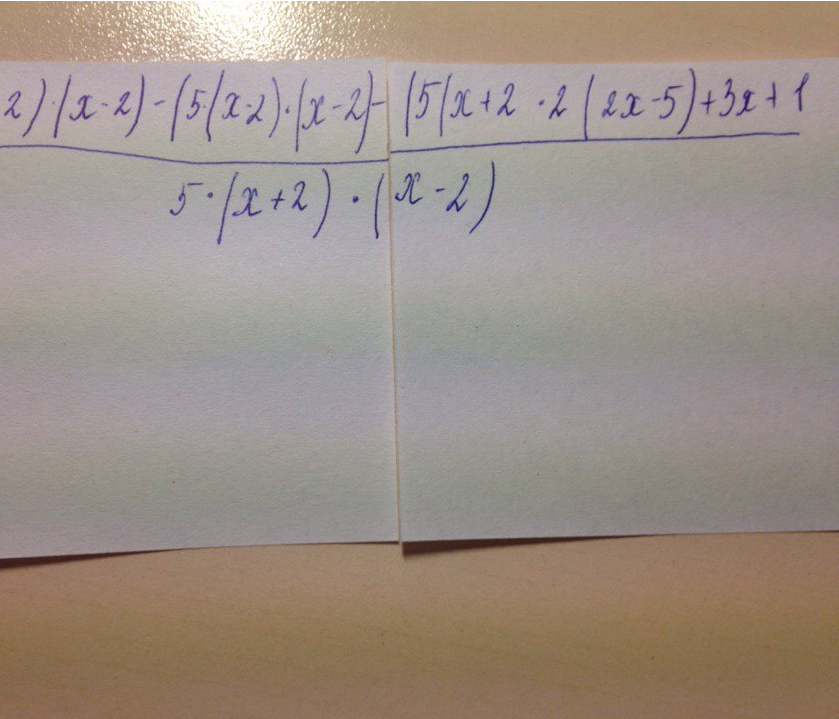 2)·(x-2)-(5·(x-2)·(x-2)-(5(x+2·2(2x-5)+3x+1
5·(x+2)·(x-2)